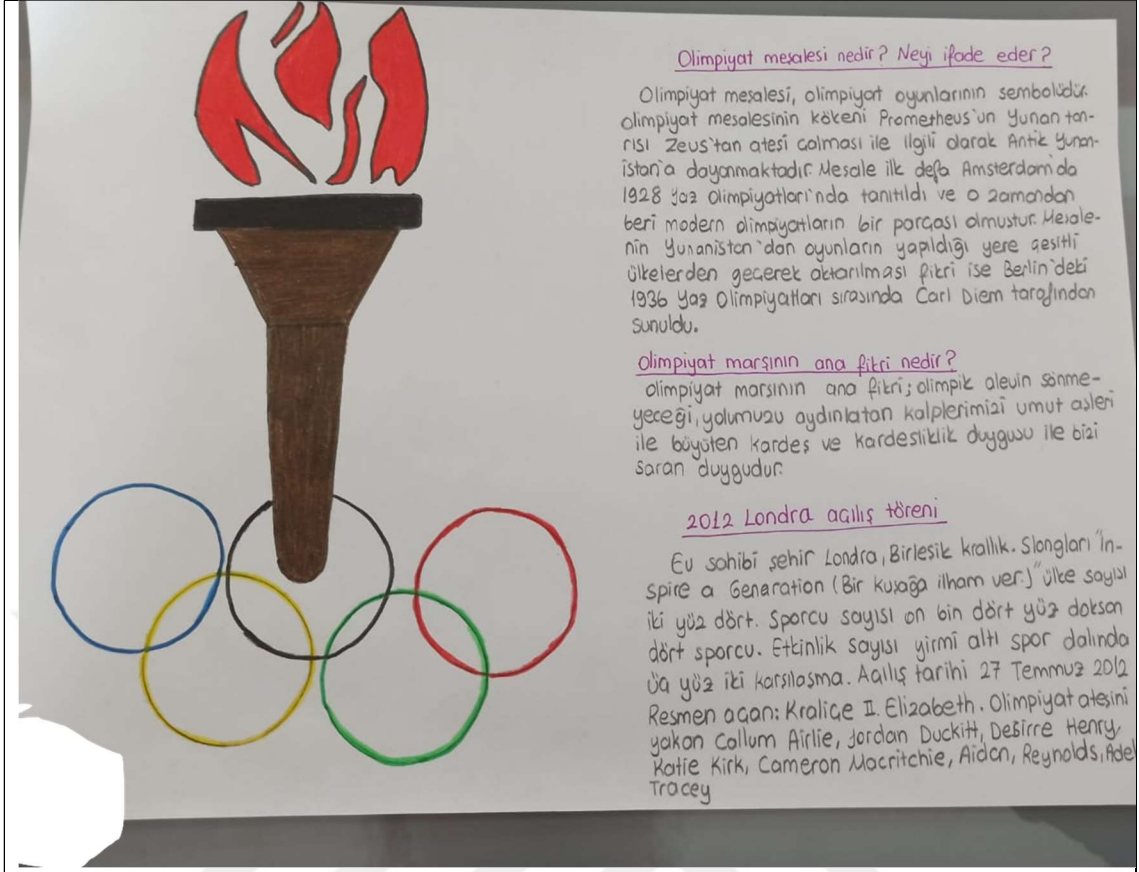 Olimpiyat meşalesi nedir? Neyi ifade eder?
Olimpiyat meşalesi, olimpiyat oyunlarının sembolüdür.
olimpiyat mesalesinin kökeni Prometheus'un Yunan tan-
rısı Zeus'tan atesi calması ile ilgili olarak Antik Yunan-
istan'a dayanmaktadır. Mesale ilk defa Amsterdam'da
1928 Yaz Olimpiyatları'nda tanıtıldı ve o zamandan
beri modern olimpiyatların bir parçası olmustur. Mesale-
nin Yunanistan'dan oyunların yapıldığı yere çesitli
ülkelerden geçerek aktarılması fikri ise Berlin'deki
1936 Yaz Olimpiyatları sırasında Carl Diem tarafından
sunuldu.
Olimpiyat marşının ana fikri nedir?
olimpiyat marsının ana fikri; olimpik alevin sönme-
yeceği, yolumuzu aydınlatan kalplerimizi umut aşleri
ile büyüten kardeş ve kardesliklik duygusu ile bizi
saran duygudur.
2012 Londra açılış töreni
Ev sahibi şehir Londra, Birlesik krallık. Slongları "In-
spire a Genaration (Bir kuşağa ilham ver.)" ülke sayısı
iki yüz dört. Sporcu sayısı on bin dört yüz doksan
dört sporcu. Etkinlik sayısı yirmi altı spor dalında
üç yüz iki karsılasma. Açılış tarihi 27 Temmuz 2012
Resmen açan: Kraliçe II. Elizabeth. Olimpiyat ateşini
yakan Callum Airlie, Jordan Duckitt, Desirre Henry,
Katie Kirk, Cameron Macritchie, Aidan, Reynolds, Adel
Tracey